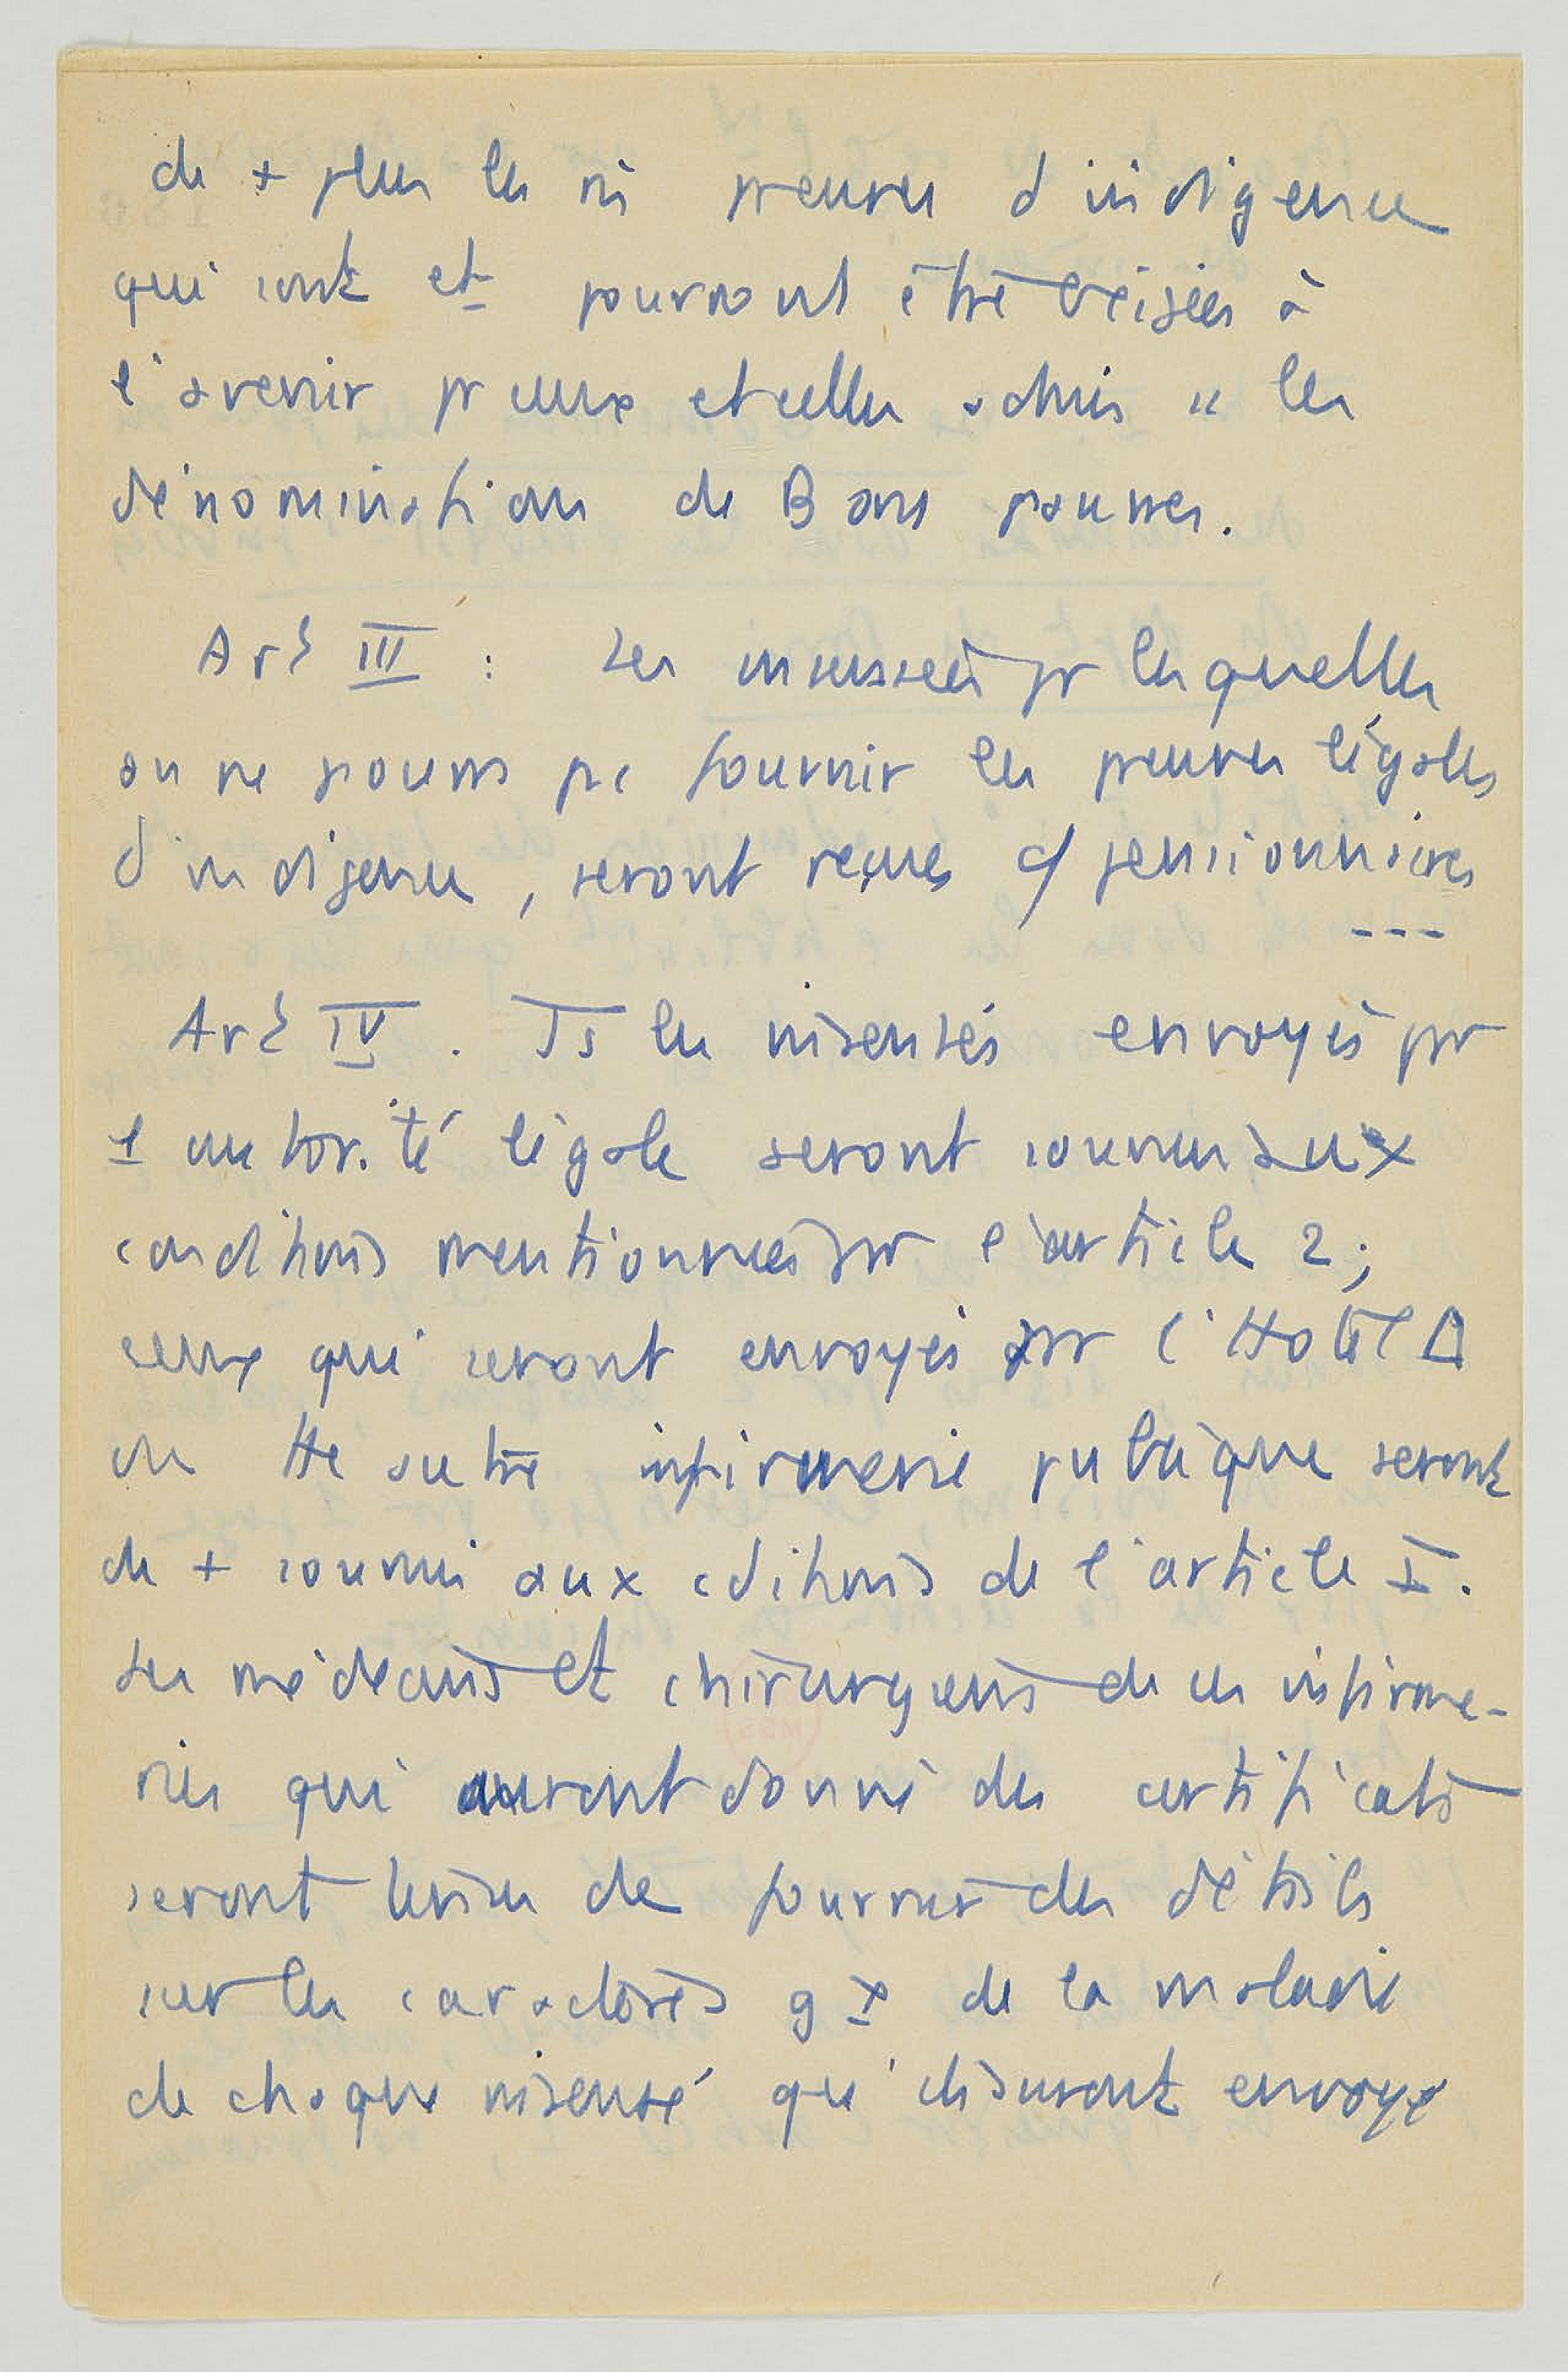 de + pour les m̂ preuves d'indigence
qui sont et pourront être exigées à
l'avenir pr ceux et celles admis " les
dénominations de Bons pauvres.
Art III : Les insensées pr lesquelles
on ne pourra pas fournir les preuves légales
d'indigence, seront reçues c/ pensionnaires
---
Art IV. Ts les insensés envoyés par
l autorité légale seront soumis aux
conditions mentionnées par l'article 2;
ceux qui seront envoyés par l'Hôtel D
ou tte autre infirmerie publique seront
de + soumis aux cditions de l'article I.
Les médecins et chirurgiens de ces infirme-
ries qui auront donné des certificats
seront tenus de fournir des détails
sur les caractères gx de la maladie
de chaque insensé qu'ils auront envoyé